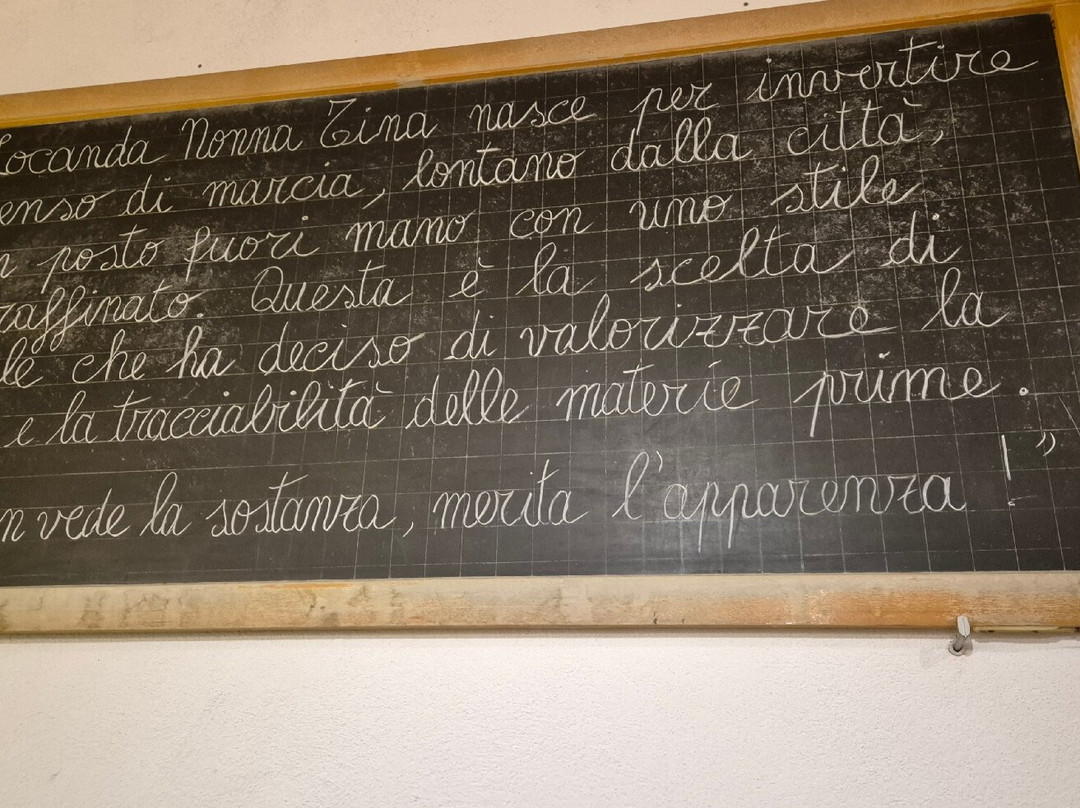 Locanda Nonna Tina nasce per invertire
enso di marcia, lontano dalla città,
n posto fuori mano con uno stile
raffinato. Questa è la scelta di
le che ha deciso di valorizzare la
e la tracciabilità delle materie prime.
n vede la sostanza, merita l'apparenza!"